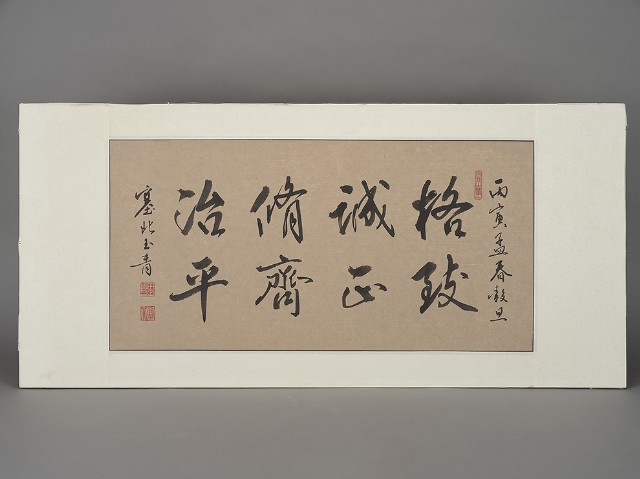 丙寅孟春穀旦
格致
誠正
脩齊
治平
塞北玉青